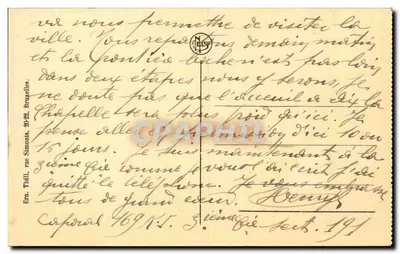 va nous permettre de visiter la
ville. Nous repartons demain matin
et la frontière boche n'est pas loin
dans deux étapes nous y serons, je
ne doute pas que l'acceuil à Aix la
Chapelle sera plus froid qu'ici. Je
pense aller en d'ici 10 ou
15 jours. Je suis maintenant à la
3ième Cie comme je vous l'ai écrit j'ai
quitté le téléphone. Je vous embrasse
tous de grand cœur. Henry
Caporal 169 R.I. 3ième Cie sect. 191
Ern. Thill, rue Simonis, 20-22, Bruxelles.
CPAPHIL